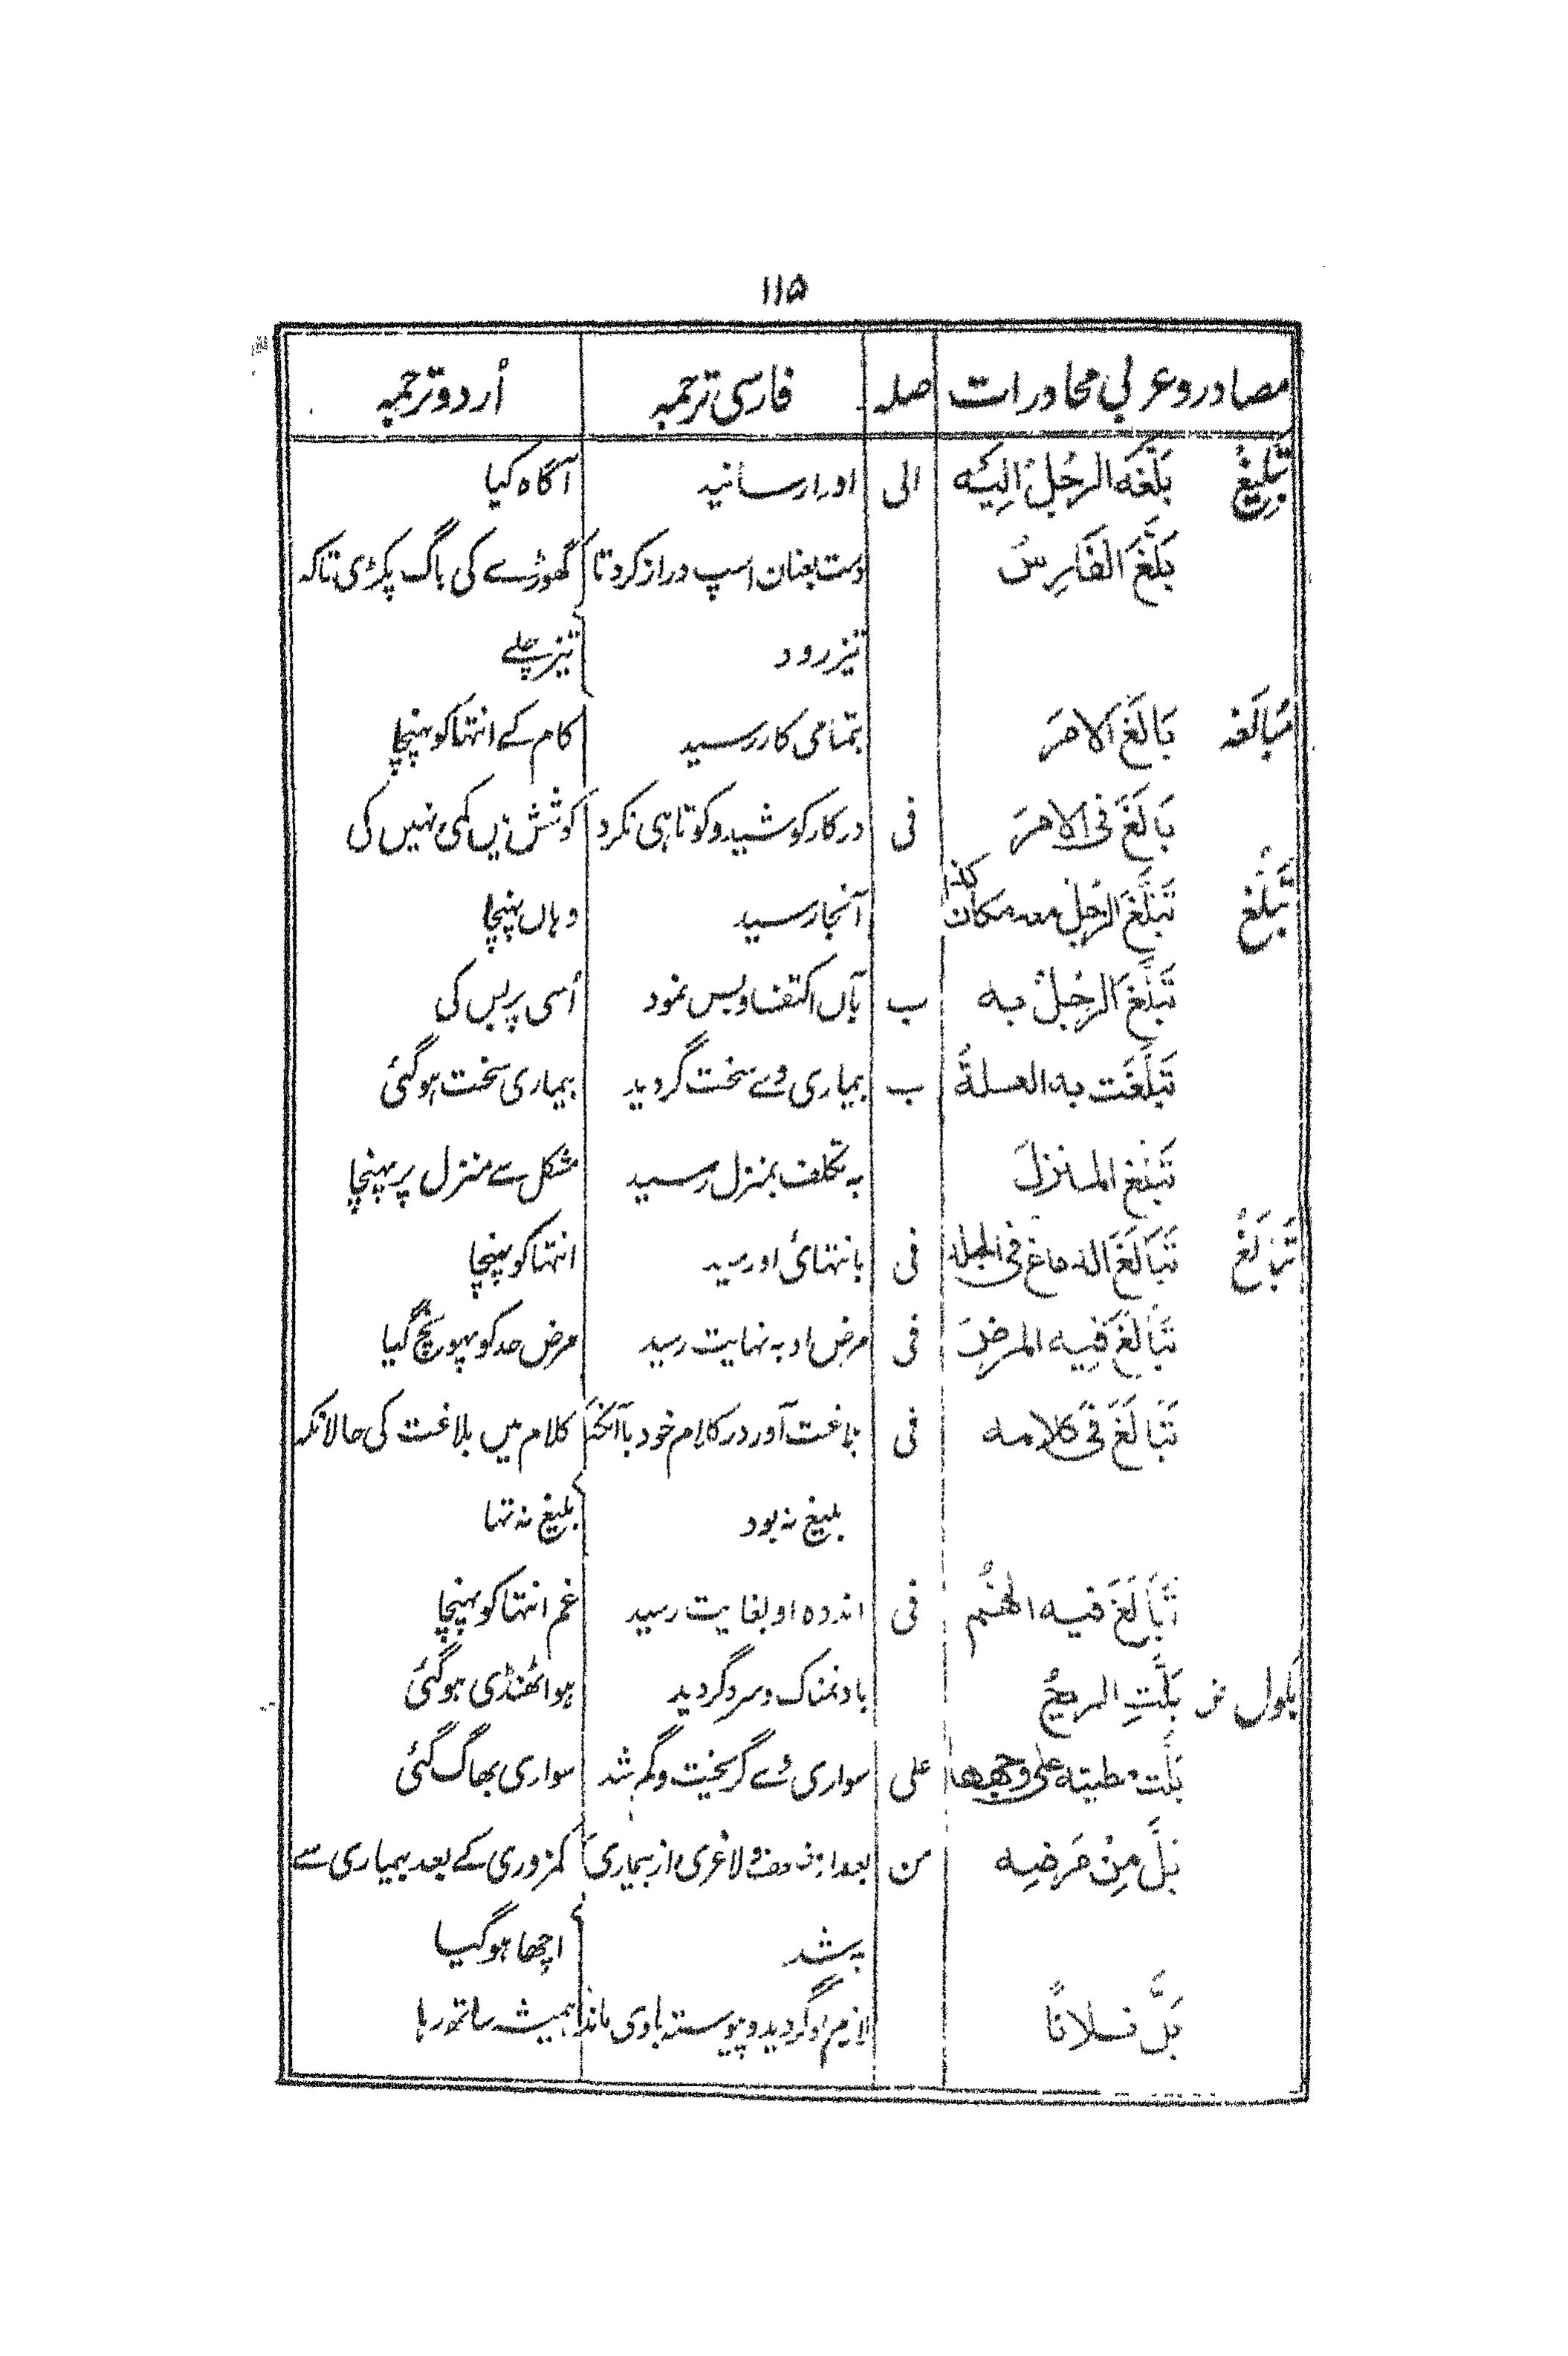 ۱۱۵
مصادر و عربی محاورات صلہ فارسی ترجمہ اُردو ترجمہ
تَبْلِیْغ بَلَّغَهُ الرَّجُلُ اِلَیْہ الی اورا رسانید آگاہ کیا
بَلَّغَ الْفَارِسُ دست بعنان اسپ دراز کرد تا گھوڑے کی باگ پکڑی تاکہ
تیز رود تیز چلے
مُبَالَغہ بَالَغَ الامرَ بتمامی کار رسید کام کے انتہا کو پہنچا
بَالَغَ فی الامرَ فی در کار کوشید و کوتاہی نکرد کوشش میں کمی نہیں کی
تَبَلُّغ تَبَلَّغَ الرَّجُلُ معہ مکان کذا آنجا رسید وہاں پہنچا
تَبَلَّغَ الرَّجُلُ بہ ب بآں اکتفا و بس نمود اُسی پر بس کی
تَبَلَّغَت بہ العلةُ ب بیماری وے سخت گردید بیماری سخت ہوگئی
تَبَلَّغ المنزلَ بہ تکلف بمنزل رسید مشکل سے منزل پر پہنچا
تَبَالُغْ تَبَالَغَ الدماغ فی الجلد فی بانتہائی او رسید انتہا کو پہنچا
تَبَالَغَ فِیہ المرضَ فی مرض او بہ نہایت رسید مرض حد کو پہونچ گیا
تَبَالَغَ فی کلامہ فی بلاغت آورد در کلام خود باآنکہ کلام میں بلاغت کی حالانکہ
بلیغ نہ بود بلیغ نہ تہا
تَبَالَغَ فیہ الھَمُّ فی اندوہ او بغایت رسید غم انتہا کو پہنچا
بَلول ن بَلَّتِ الریحُ باد نمناک و سرد گردید ہوا ٹھنڈی ہوگئی
بَلَّت مطیتہ علی وجھھا علی سواری وے گریخت و گم شد سواری بھاگ گئی
بَلَّ مِنْ مَرَضِہ من بعد از ضعف و لاغری از بیماری کمزوری کے بعد بیماری سے
بہ شد اچھا ہوگیا
بَلَّ فلانًا لازم او گردید و پیوستہ باوی ماند ہمیشہ ساتھ رہا